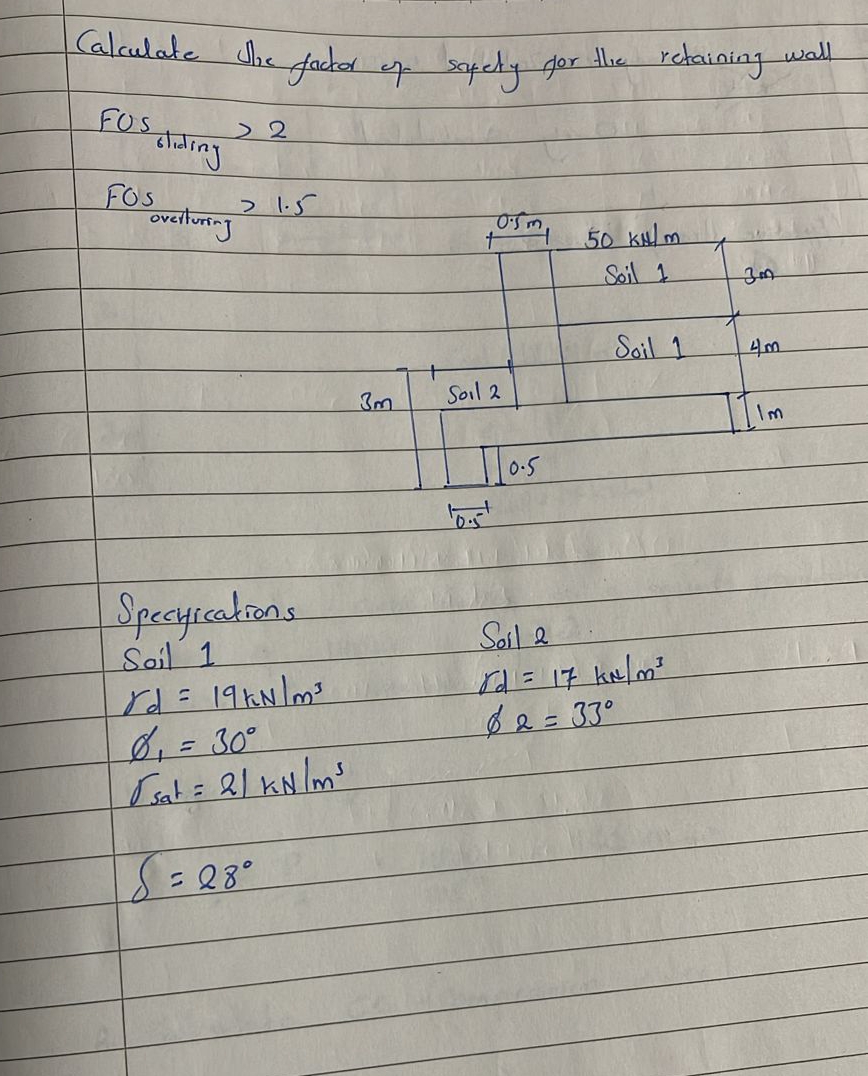 Calculate the factor of safety for the retaining wall
FOS sliding > 2
FOS overturing > 1.5
0.5m
50 kN/m
Soil 1
3m
Soil 1
4m
3m
Soil 2
1m
0.5
0.5
Specifications
Soil 1
γd = 19 kN/m³
ϕ₁ = 30°
γsat = 21 kN/m³
δ = 28°
Soil 2
γd = 17 kN/m³
ϕ 2 = 33°